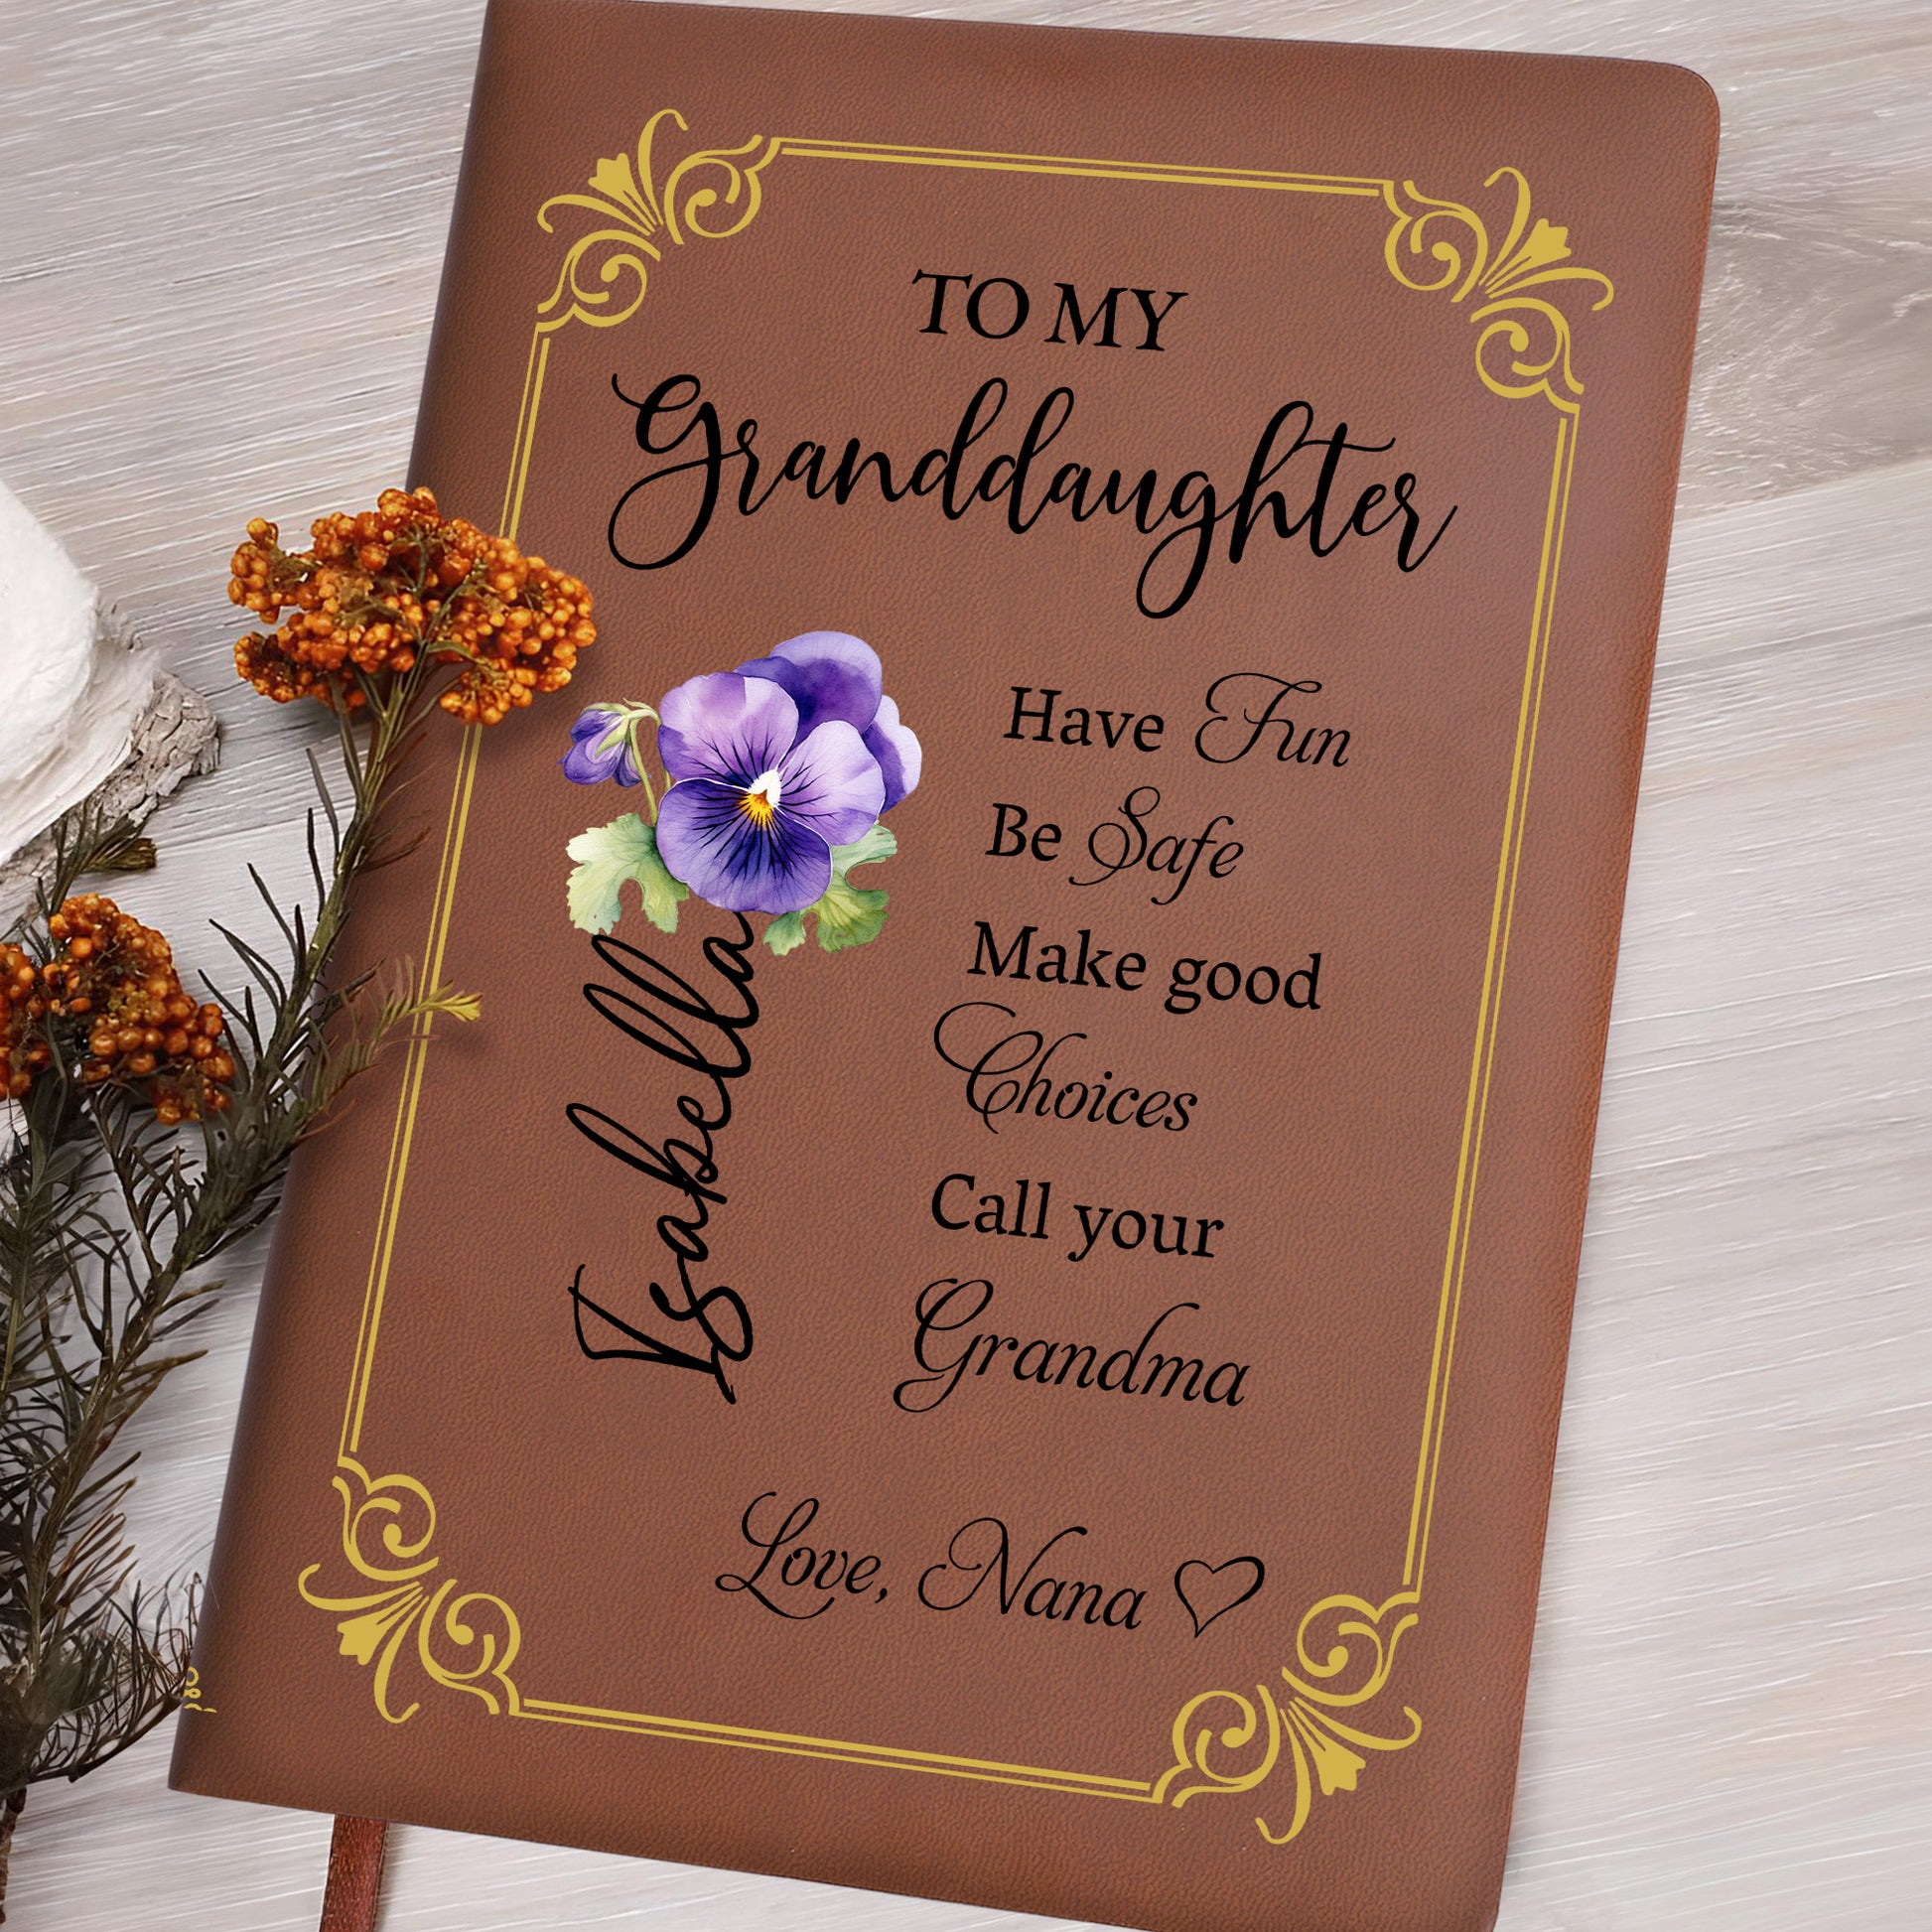 TO MY
Granddaughter
Isabella
Have Fun
Be Safe
Make good
Choices
Call your
Grandma
Love, Nana ♡